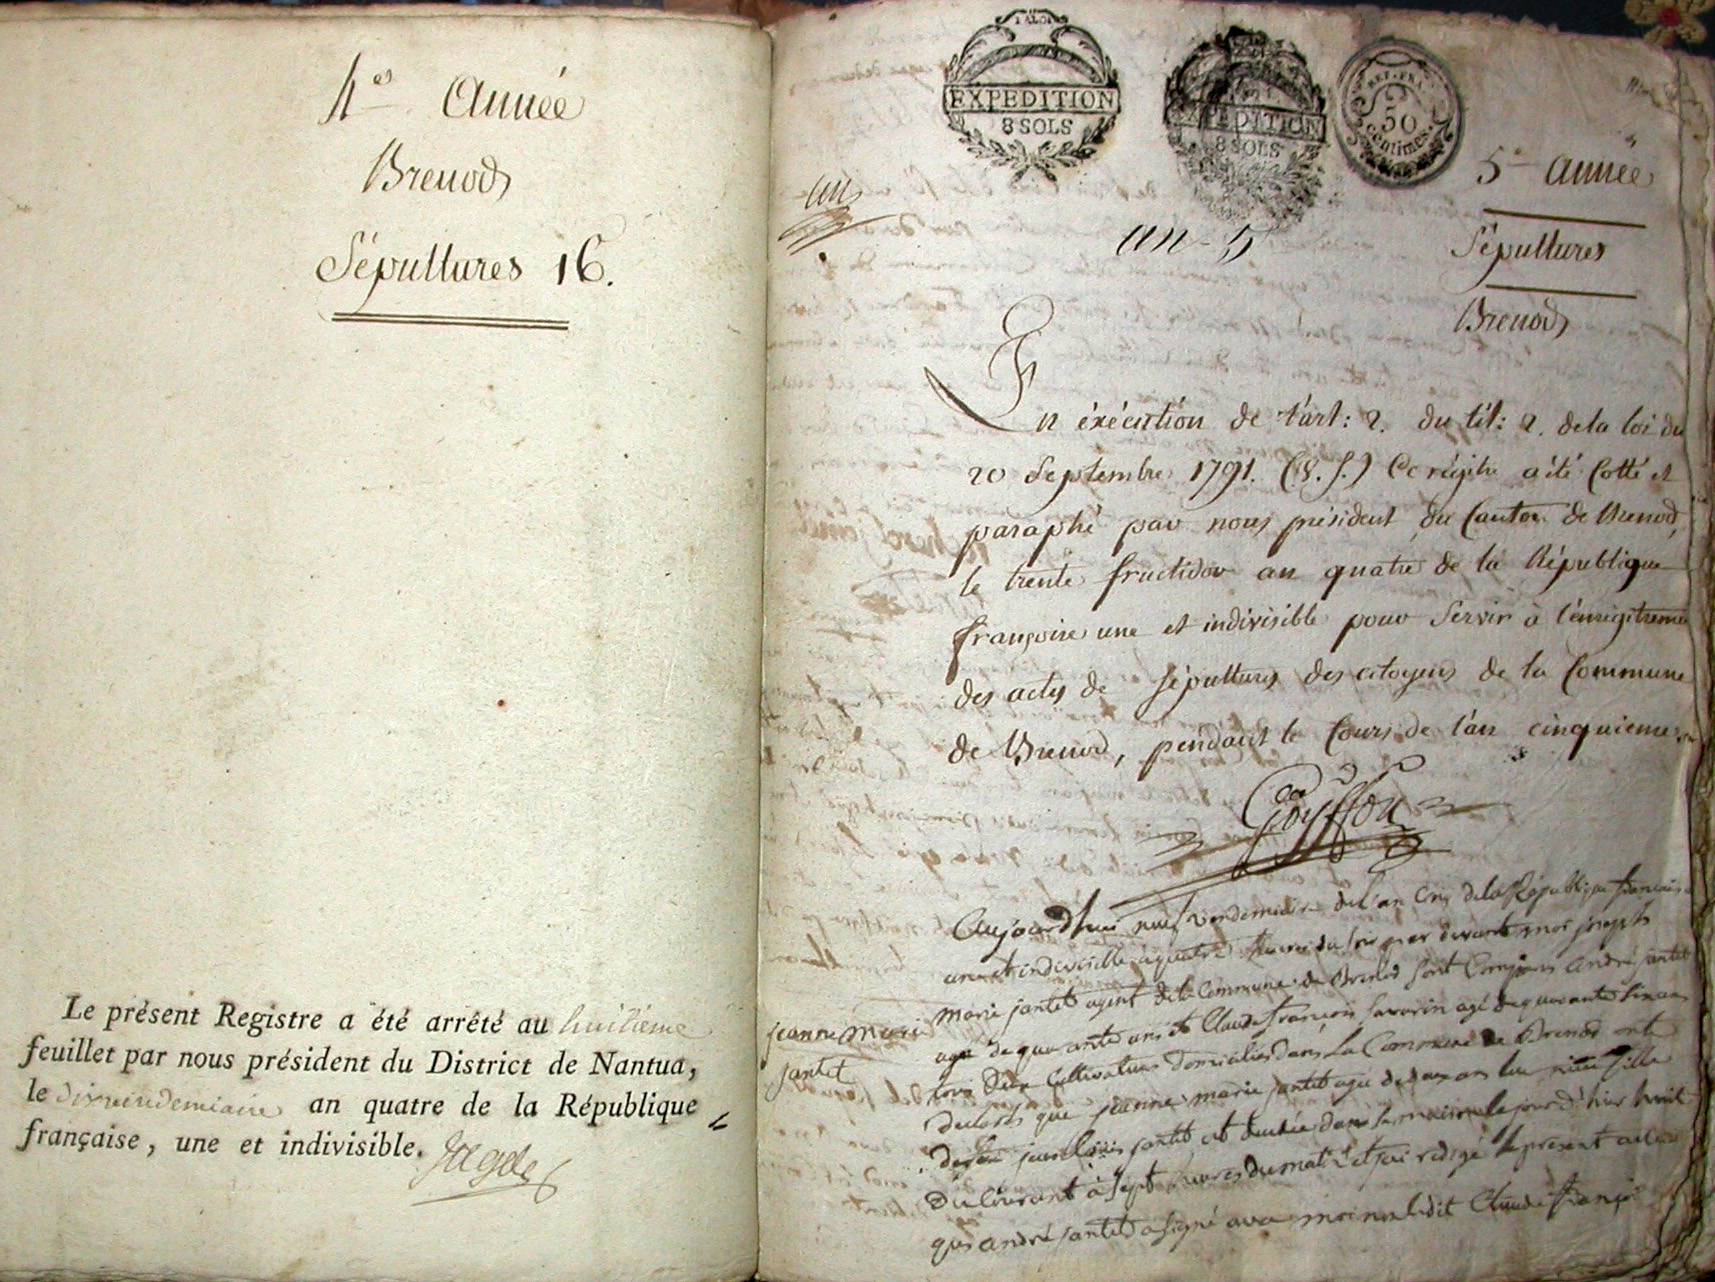 4es Année
Brenod
Sépultures 16.
Le présent Registre a été arrêté au huitieme
feuillet par nous président du District de Nantua,
le dix vendemiaire an quatre de la République
française, une et indivisible.
EXPEDITION
8 SOLS
EXPEDITION
8 SOLS
REP. FRA.
50
centimes.
un
an - 5
5e année
Sépultures
Brenod
En éxécution de l'art: 2. du tit: 2. de la loi du
20 Septembre 1791. (V. S.) Ce régitre a été Cotté et
paraphé par nous président du Canton de Brenod,
le trente fructidor an quatre de la République
françoise une et indivisible pour Servir à l'enrégitreme
des actes de Sépultures des citoyens de la Commune
de Brenod, pendant le Cours de l'an cinquieme
Gouffon
Aujourd'hui neuf vendemiaire de l'an cinq de la République francaise
une et indivisible à quatre heures du soir par devant moi joseph
marie jantet agent de la Commune de Brenod sont Comparus André jantet
agé de quarante ans et Claude françois Savarin agé de quarante six ans
tous deux Cultivateurs domiciliés dans La Commune de Brenod ont
declarés que jeanne marie jantet agée de deux ans leur niece fille
jantet est decédée dans sa maison le jour d'hier huit
Du Courant à sept heures du matin et j'ai redigé le present acte
que andré jantet a signé avec moi non ledit Claude françois
jeanne marie
jantet